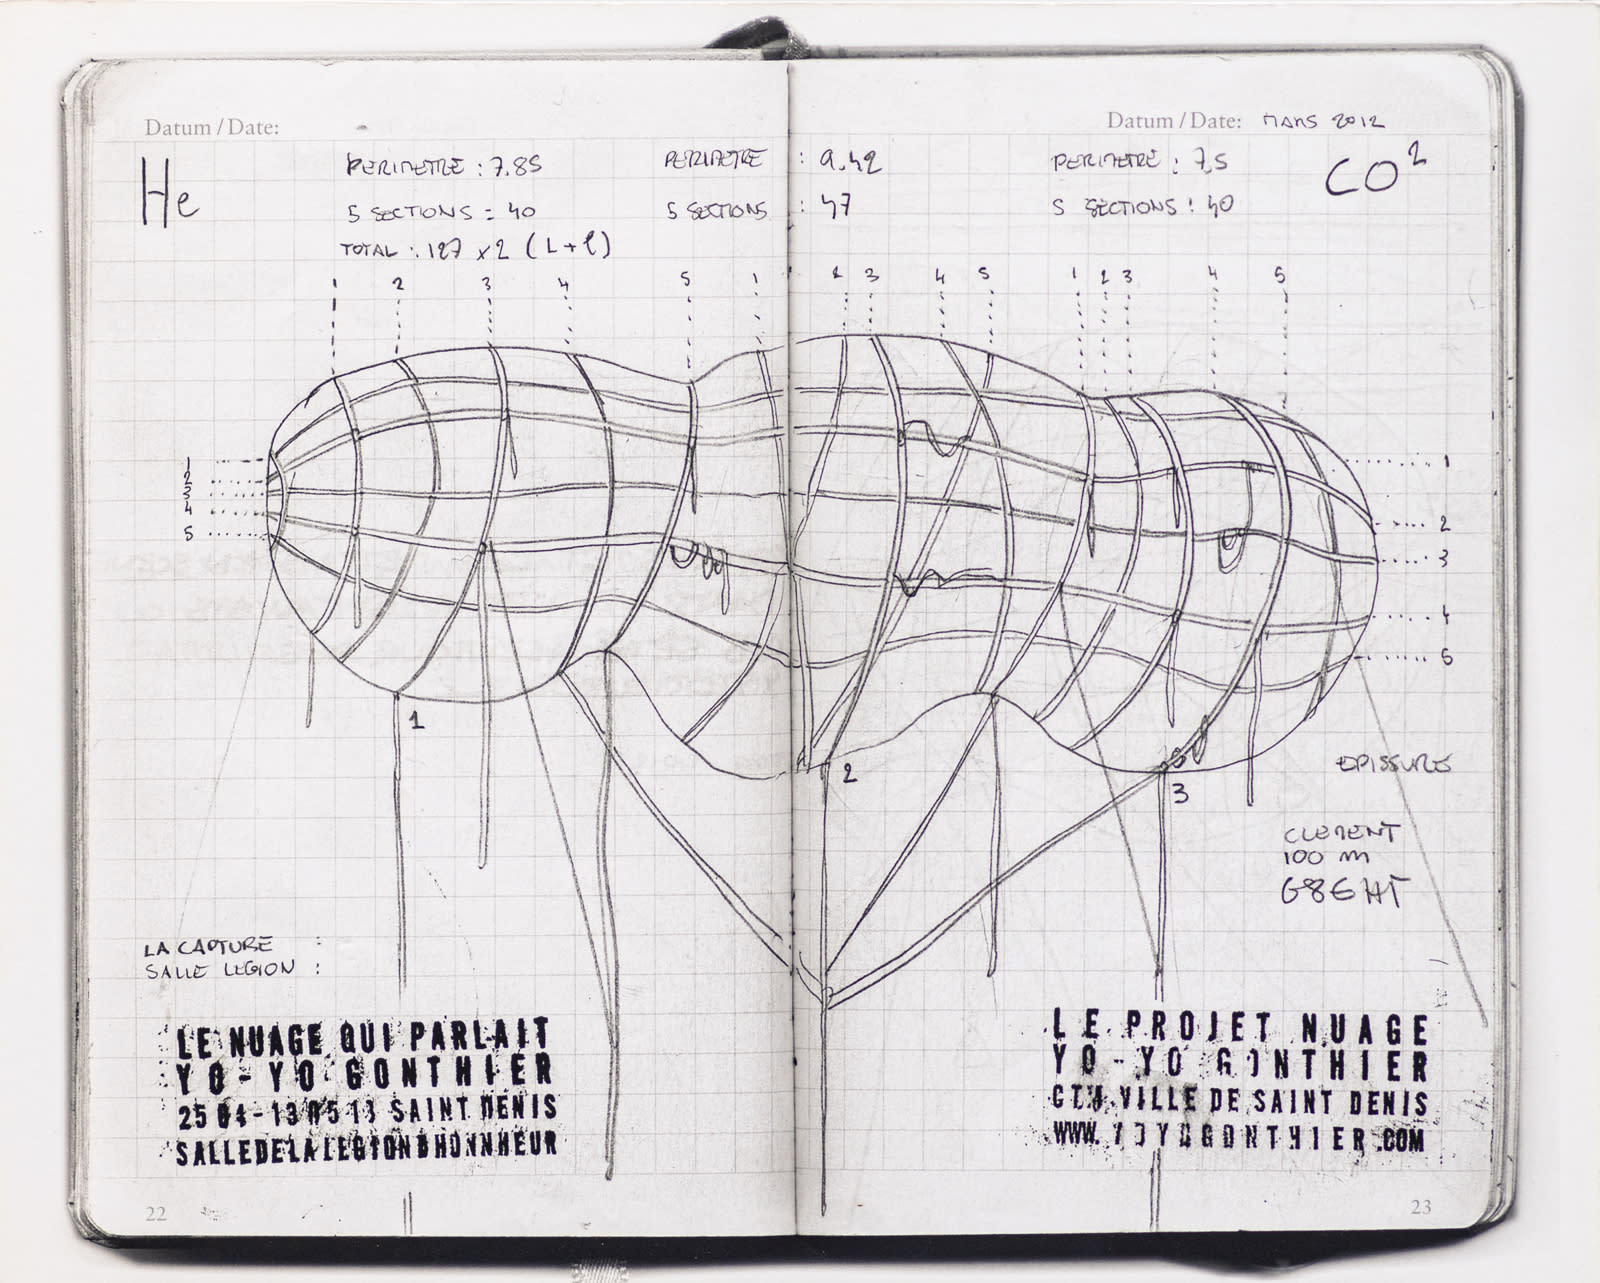 Datum / Date:
He
PERIMETRE : 7.85
5 SECTIONS = 40
TOTAL : 127 x 2 (L + l)
PERIMETRE : 9.42
5 SECTIONS : 47
Datum / Date: MARS 2012
PERIMETRE : 7,5
5 SECTIONS : 40
CO²
1 2 3 4 5 1 2 3 4 5 1 2 3 4 5
1
2
3
4
5
1
2
3
4
5
1
2
3
EPISSURES
CLEMENT
100 m
LA CAPTURE :
SALLE LEGION :
LE NUAGE QUI PARLAIT
YO-YO GONTHIER
25 04-13 05 13 SAINT DENIS
SALLE DE LA LEGION D HONNHEUR
LE PROJET NUAGE
YO-YO GONTHIER
VILLE DE SAINT DENIS
WWW.YOYOGONTHIER.COM
22
23